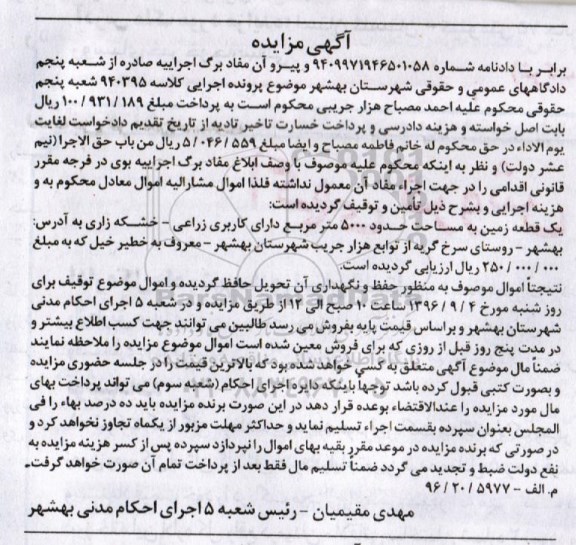 آگهی مزایده
برابر با دادنامه شماره ۹۴۰۹۹۷۱۹۴۶۵۰۱۰۵۸ و پیرو آن مفاد برگ اجراییه صادره از شعبه پنجم
دادگاههای عمومی و حقوقی شهرستان بهشهر موضوع پرونده اجرایی کلاسه ۹۴۰۳۹۵ شعبه پنجم
حقوقی محکوم علیه احمد مصباح هزار جریبی محکوم است به پرداخت مبلغ ۱۸۹ / ۹۳۱ / ۱۰۰ ریال
بابت اصل خواسته و هزینه دادرسی و پرداخت خسارت تاخیر تادیه از تاریخ تقدیم دادخواست لغایت
یوم الاداء در حق محکوم له خانم فاطمه مصباح و ایضا مبلغ ۵۵۹ / ۰۴۶ / ۵ ریال من باب حق الاجرا (نیم
عشر دولت) و نظر به اینکه محکوم علیه موصوف با وصف ابلاغ مفاد برگ اجراییه بوی در فرجه مقرر
قانونی اقدامی را در جهت اجراء مفاد آن معمول نداشته فلذا اموال مشارالیه اموال معادل محکوم به و
هزینه اجرایی و بشرح ذیل تأمین و توقیف گردیده است:
یک قطعه زمین به مساحت حدود ۵۰۰۰ متر مربع دارای کاربری زراعی - خشکه زاری به آدرس:
بهشهر - روستای سرخ گریه از توابع هزار جریب شهرستان بهشهر - معروف به خطیر خیل که به مبلغ
۰۰۰ / ۰۰۰ / ۲۵۰ ریال ارزیابی گردیده است.
نتیجتاً اموال موصوف به منظور حفظ و نگهداری آن تحویل حافظ گردیده و اموال موضوع توقیف برای
روز شنبه مورخ ۴ / ۹ / ۱۳۹۶ ساعت ۱۰ صبح الی ۱۲ از طریق مزایده و در شعبه ۵ اجرای احکام مدنی
شهرستان بهشهر و براساس قیمت پایه بفروش می رسد طالبین می توانند جهت کسب اطلاع بیشتر و
در مدت پنج روز قبل از روزی که برای فروش معین شده است اموال موضوع مزایده را ملاحظه نمایند
ضمناً مال موضوع آگهی متعلق به کسی خواهد شده بود که بالاترین قیمت را در جلسه حضوری مزایده
و بصورت کتبی قبول کرده باشد توجهاً باینکه دایره اجرای احکام (شعبه سوم) می تواند پرداخت بهای
مال مورد مزایده را عندالاقتضاء بوعده قرار دهد در این صورت برنده مزایده باید ده درصد بهاء را فی
المجلس بعنوان سپرده بقسمت اجراء تسلیم نماید و حداکثر مهلت مزبور از یکماه تجاوز نخواهد کرد و
در صورتی که برنده مزایده در موعد مقرر بقیه بهای اموال را نپردازد سپرده پس از کسر هزینه مزایده به
نفع دولت ضبط و تجدید می گردد ضمناً تسلیم مال فقط بعد از پرداخت تمام آن صورت خواهد گرفت.
م. الف - ۵۹۷۷ / ۲۰ / ۹۶
مهدی مقیمیان - رئیس شعبه ۵ اجرای احکام مدنی بهشهر